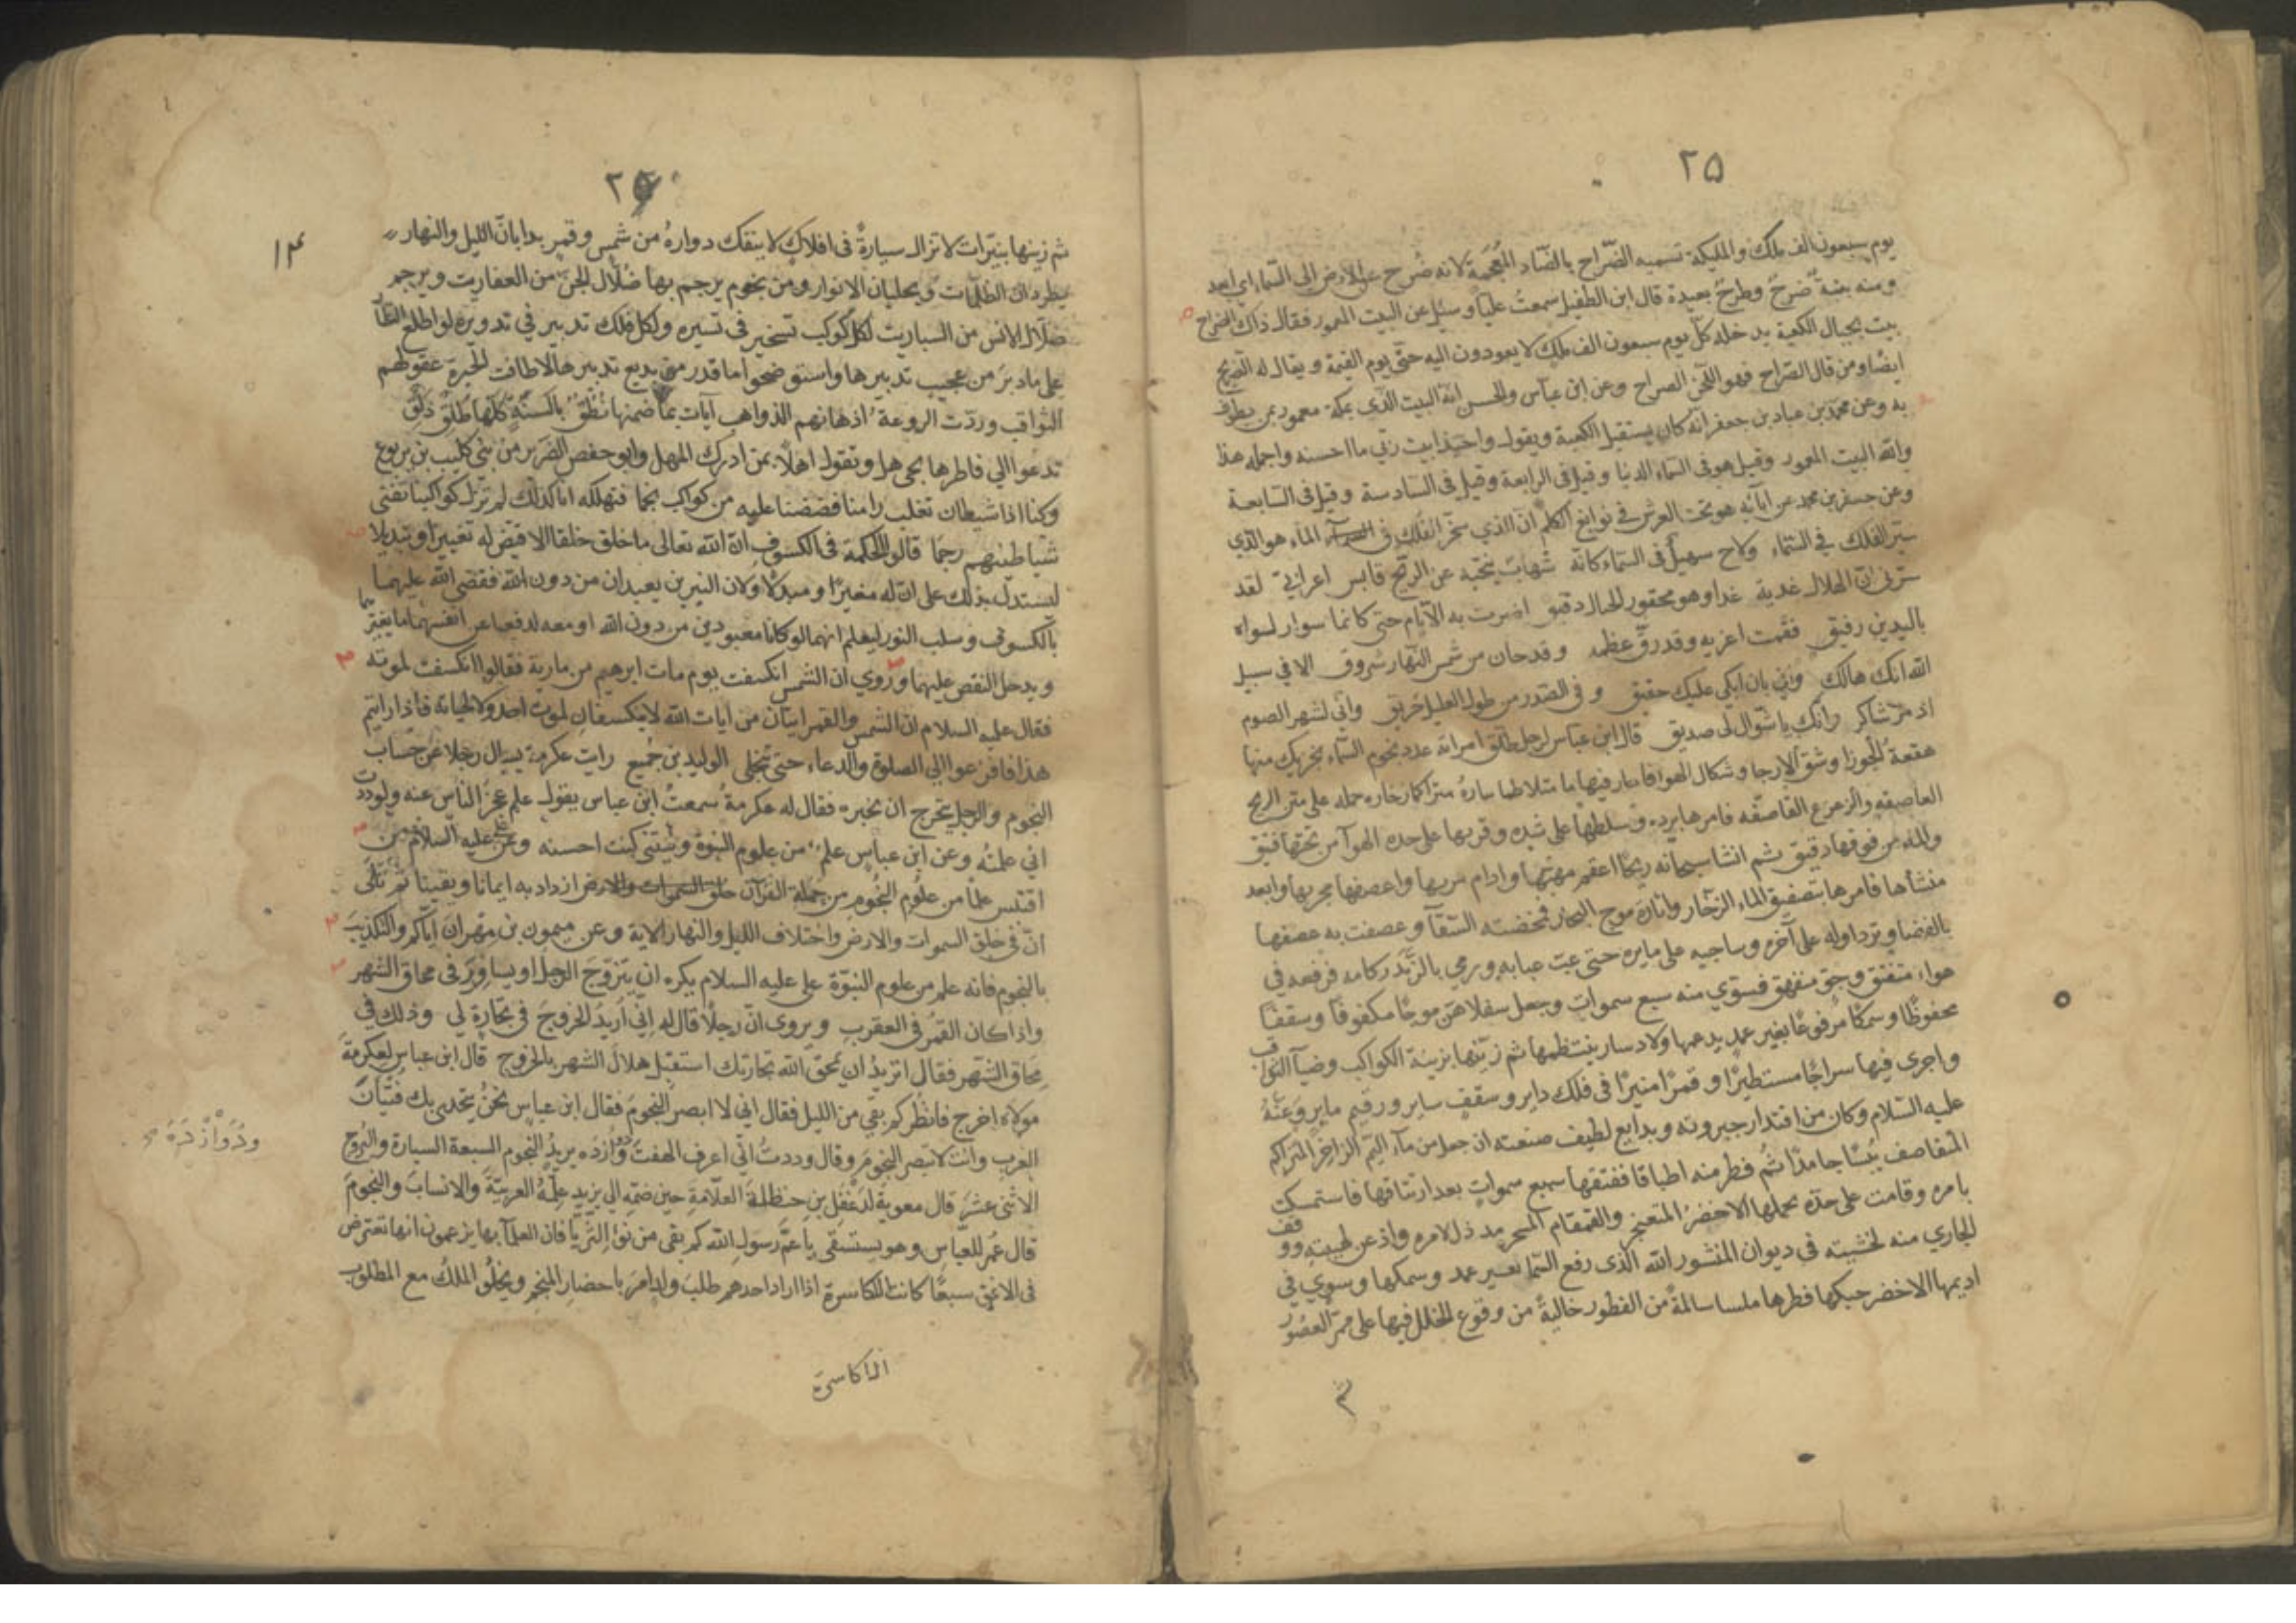 ٢٥
يوم سبعون الف ملك والمليكة تسميه الضّراح بالضّاد المُعجَمة لانه ضُرح عن الارض الى السّماء اى ابعد
ومنه نيّة ضرحٌ وطرحٌ بعيدة قال ابن الطفيل سمعتُ عليًّا وسئل عن البيت المعمور فقال ذاك الضراح
بيت بحيال الكعبة يدخله كلّ يوم سبعون الف ملك لا يعودون اليه حتّى يوم القيمة ويقال له الضريح
ايضًا ومن قال الصّراح فهو اللّحن الصراح وعن ابن عبّاس والحسن انّه البيت الذي بمكة معمور بمن يطوف
به وعن محمّد بن عباد بن جعفر انّه كان يستقبل الكعبة ويقول واحبّذا بيت ربّي ما احسنه واجمله هذا
والله البيت المعمور وقيل هو فى السّماء الدنيا وقيل فى الرابعة وقيل فى السّادسة وقيل فى السّابعة
وعن جعفر بن محمد عن آبائه هو تحت العرش فى نوابغ الكلم انّ الذي سخّر الفلك فى الماء هو الذي
سيّر الفلك في السّماء ولاح سهيلٌ فى السّماء كانّه شهاب ينحّيه عن الريح قابس اعرابيّ لقد
سرّني انّ الهلال غدية غدا وهو محقور الخيال دقيق اضرت به الايّام حتى كانما سوار لواه
باليدين رفيق فقمت اعزيه وقد رقّ عظمه وقد حان من شمس النّهار شروق الا في سبيل
الله انك هالك وانّي بان ابكي عليك حقيق و فى الصّدر من طول الغليل حَريق وانّي لشهر الصوم
اذ مرّ شاكر وانّك يا شوّال لى صديق قال ابن عباس لرجل طلّق امراته عدد نجوم السّماء يجزيك منها
هقعةُ الجوزا وشقّ الارجا وشكال الهوا فاجار فيها ما متلاطما تياره متراكما زخاره حمله على متن الريح
العاصفه والزعزع القاصفه فامرها بردّه وسلطها على شدّه وقرنها على حده الهوا من تحتها فتيق
والماء من فوقها دقيق ثم انشا سبحانه ريحًا اعقم مهبّها وادام مربها واعصف مجريها وابعد
منشأها فامرها بتصفيق الماء الزخّار واثارة موج البحار فمخضته السّقآ وعصفت به عصفها
بالفضا وتردّ اوله على آخره وساجيه على مايره حتى عبّ عبابه ورمي بالزّبد ركامه فرفعه في
هواء منفتق وجوّ منفهق فسوّي منه سبع سموات وجعل سفلاهنّ موجًا مكفوفًا وسقفًا
محفوظًا وسمكًا مرفوعًا بغير عمد يدعمها ولا دسار ينتظمها ثم زيّنها بزينة الكواكب وضيآ الثواقب
واجرى فيها سراجًا مستطيرًا وقمرًا منيرًا فى فلك داير وسقف ساير ورقيم ماير وعنهُ
عليه السّلام وكان من اقتدار جبروته وبدايع لطيف صنعته ان جعل من مآء اليمّ الزاخر المتراكم
المتقاصف يَبَسًا جامدًا ثُم فطر منه اطباقا ففتقها سبع سموات بعد ارتتاقها فاستمسكت
بامره وقامت على حدّه يحملها الاخضرُ المثعنجر والقمقام المسخر قد ذل لامره واذعن لهيبته ووقف
الجاري منه لخشيته فى ديوان المنثور الله الذى رفع السّما بغير عمد وسمكها وسوي في
اديمها الاخضر حبكها فطرها ملسا سالمةً من الفطور خاليةً من وقوع الخلل فيها على ممرّ العصور
ثم
٢٥
١٣
ثم زينها بنيّرات لا تزال سيارةً فى افلاكٍ لا ينفك دوارهُ من شمسٍ وقمرٍ يدايان الليل والنهار
يطردان الظلمات ويجليان الانوار ومن نجوم يرجم بها ضُلّال الجنّ من العفاريت ويرجم
ضلّال الانس من السباريت لكل كوكب تسخير فى تسيره ولكل فلك تدبير في تدويره لو اطلع النظار
على ما دبرَ من عجيب تدبيرها واستوضحوا ما قدر من بديع تدبيرها لاطافت الحيرة عقولهم
الثواقب وردّت الروعة اذهانهم الذواهب آيات بما ضمنها نُطُقٌ بالسنّةٍ كلّها طُلُقٌ ذُلُق
تدعو الي فاطرها بحىّ هل وتقول اهلًا بمن ادرك المهل وابو حفص الضّرير من بني كليب بن يربوع
وكنا اذا شيطان تغلب رامنا فقضضنا عليه من كواكب نجما فنهلكه انا كذلك لم تزل كواكبنا تفنى
شياطينهم رجما قالوا الحكمة فى الكسوف انّ الله تعالى ما خلق خلقا الا قيض له تغييرا وتبديلا
ليستدلّ بذلك على انّ له مغيرًا ومبدّلًا ولان النيرين يعبدان من دون الله فقضى الله عليهما
بالكسوف وسلب النور ليعلم انهما لو كانا معبودين من دون الله او معه لدفعا عن انفسهما ما يغيرهما
ويدخل النقص عليهما وروي ان الشمس انكسفت يوم مات ابرهيم من مارية فقالوا انكسفت لموته
فقال عليه السلام ان الشمس والقمر ايتان من آيات الله لا ينكسفان لموت احد ولا لحياته فاذا رايتم
هذا فافزعوا الي الصلوة والدعاء حتى تجلى الوليد بن جُميع رايت عكرمة يسال رجلا عن حساب
النجوم والرجل يتحرج ان يخبره فقال له عكرمة سمعتُ ابن عباس يقول علم عجز الناس عنه ولوددت
اني علمتُه وعن ابن عباس علم من علوم النبوّة وليتنى كنت احسنه وعن علي عليه السلام من
اقتبس علما من علوم النجوم من حملة القرآن ازداد به ايمانا ويقينا ثم تلى
انّ فى خلق السموات والارض واختلاف الليل والنهار الاية وعن ميمون بن مهران ايّاكم والتكذيب
بالنجوم فانه علم من علوم النبوّة على عليه السلام يكره ان يتزوّجَ الرجل او يسافِرَ فى محاق الشهر
واذا كان القمرُ فى العقرب ويروى انّ رجلًا قال له اِنّي اُريدُ الخروجَ في تجارةٍ لي وذلك في
مِحاق الشهر فقال اتريدُ ان يمحق الله تجارتك استقبِل هلالَ الشهر بالخروج قال ابن عباس لعكرمةَ
مولاه اخرج فانظُر كم بقي من الليل فقال اني لا ابصر النجومَ فقال ابن عباس نحنُ يتحدى بك فتيان
العرب وانت لا تبصر النجومَ وقال وددتُ انّي اعرف الهفتَ ودوازده يريدُ النجوم السبعة السيارة والبُروج
الاثنى عشرَ قال معوية لدَغفَلِ بن حنظلةَ العلّامة حين ضمّه الي يزيد علّمهُ العربيّةَ والانسابَ والنجومَ
قال عُمر للعبّاس وهو يستسقى يا عمّ رسول الله كم بقى من نَوْء الثريّا فان العلمآ بها يزعمون انها تعترض
فى الافق سبعًا كانت الاكاسرة اذا اراد احدهم طلبَ ولدٍ امرَ باحضار المنجم ويخلُو الملكُ مع المطلوب
وَدُوَازْدَهْ
الاكاسرة